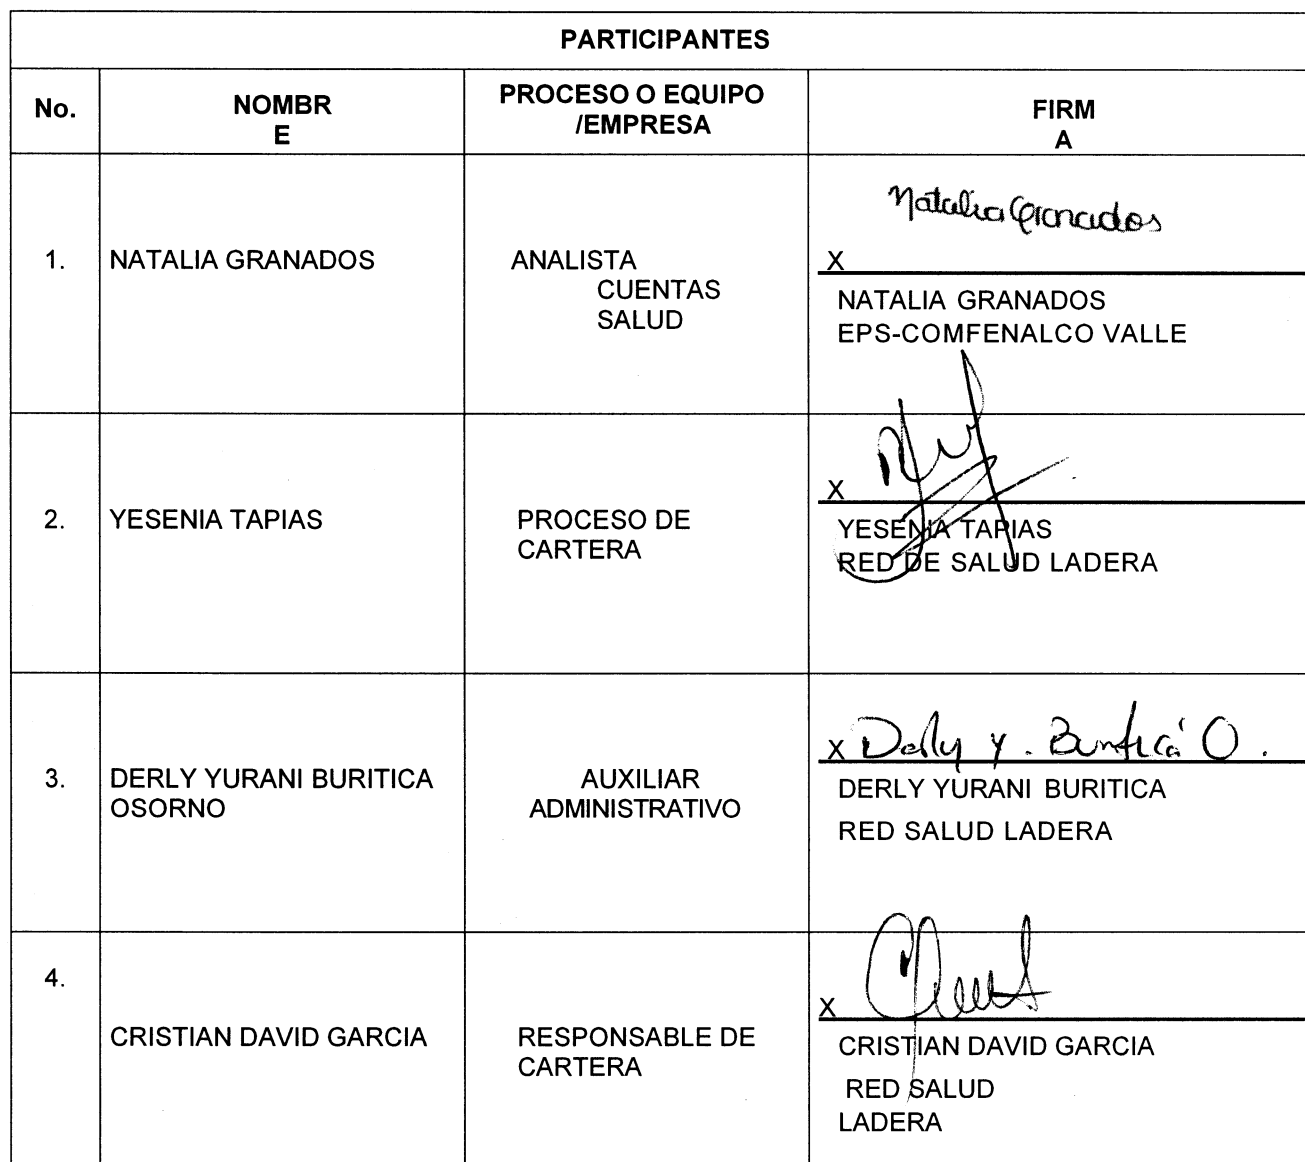 PARTICIPANTES
No.
NOMBR
E
PROCESO O EQUIPO
/EMPRESA
FIRM
A
1.
NATALIA GRANADOS
ANALISTA
CUENTAS
SALUD
Natalia Granados
X
NATALIA GRANADOS
EPS-COMFENALCO VALLE
2.
YESENIA TAPIAS
PROCESO DE
CARTERA
X
YESENIA TAPIAS
RED DE SALUD LADERA
3.
DERLY YURANI BURITICA
OSORNO
AUXILIAR
ADMINISTRATIVO
X Derly Y. Buriticá O.
DERLY YURANI BURITICA
RED SALUD LADERA
4.
CRISTIAN DAVID GARCIA
RESPONSABLE DE
CARTERA
X
CRISTIAN DAVID GARCIA
RED SALUD
LADERA